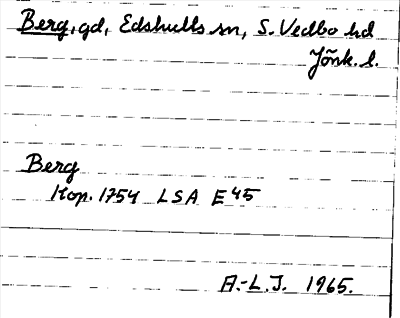 Berg, gd, Edshults sn, S. Vedbo hd
Jönk. l.
Berg
Kop. 1754 LSA E 45
A.-L.J. 1965.